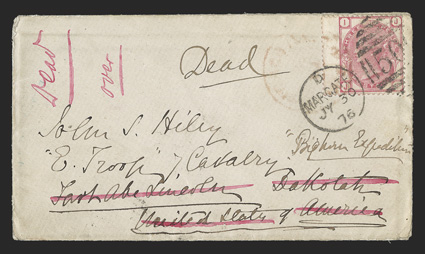 Dead
over
Dead
D
MARGATE
JY 30
76
John S. Hiley
"E. Troop" 7, Cavalry
"Bighorn Expedition
Fort Abe Lincoln Dakotah
United States of America